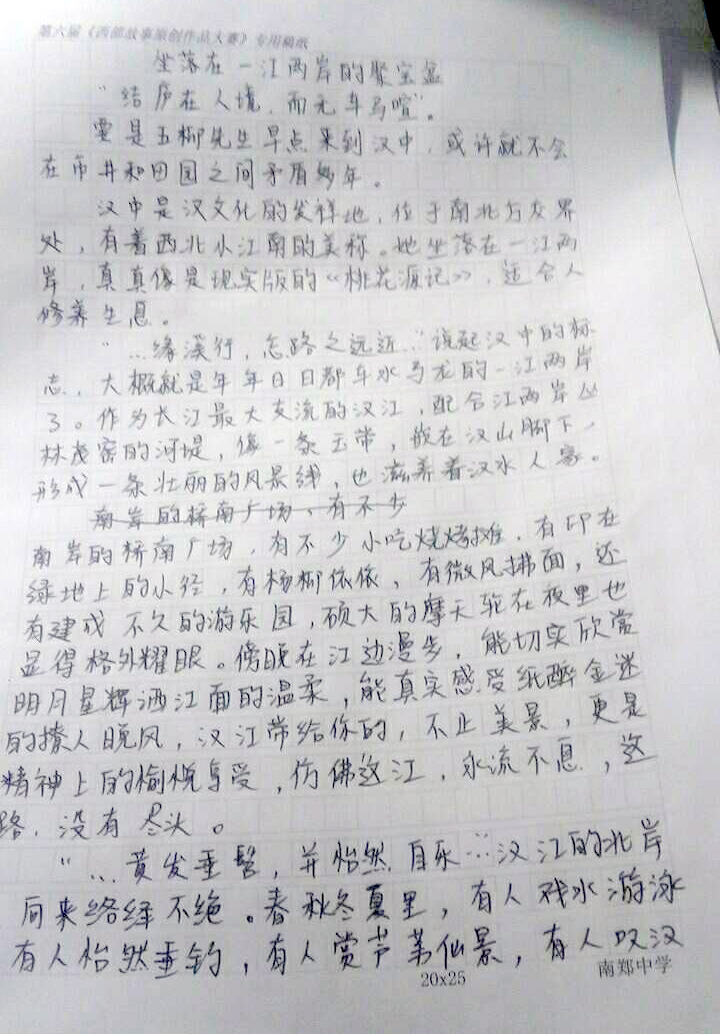 第六届《西部故事原创作品大赛》专用稿纸
坐落在一江两岸的聚宝盆
“结庐在人境，而无车马喧”。
要是五柳先生早点来到汉中，或许就不会
在市井和田园之间矛盾多年。
汉中是汉文化的发祥地，位于南北方交界
处，有着西北小江南的美称。她坐落在一江两
岸，真真像是现实版的《桃花源记》，适合人
修养生息。
“…缘溪行，忘路之远近…”说起汉中的标
志，大概就是年年日日都车水马龙的一江两岸
了。作为长江最大支流的汉江，配合江两岸丛
林茂密的河堤，像一条玉带，嵌在汉山脚下，
形成一条壮丽的风景线，也滋养着汉水人家。
南岸的桥南广场，有不少
南岸的桥南广场，有不少小吃烧烤摊，有印在
绿地上的小径，有杨柳依依，有微风拂面，还
有建成不久的游乐园，硕大的摩天轮在夜里也
显得格外耀眼。傍晚在江边漫步，能切实欣赏
明月星辉洒江面的温柔，能真实感受纸醉金迷
的撩人晚风，汉江带给你的，不止美景，更是
精神上的愉悦享受，仿佛这江，水流不息，这
路，没有尽头。
“…黄发垂髫，并怡然自乐…汉江的北岸
向来络绎不绝。春秋冬夏里，有人戏水游泳
有人怡然垂钓，有人赏芦苇仙景，有人叹汉
20x25
南郑中学